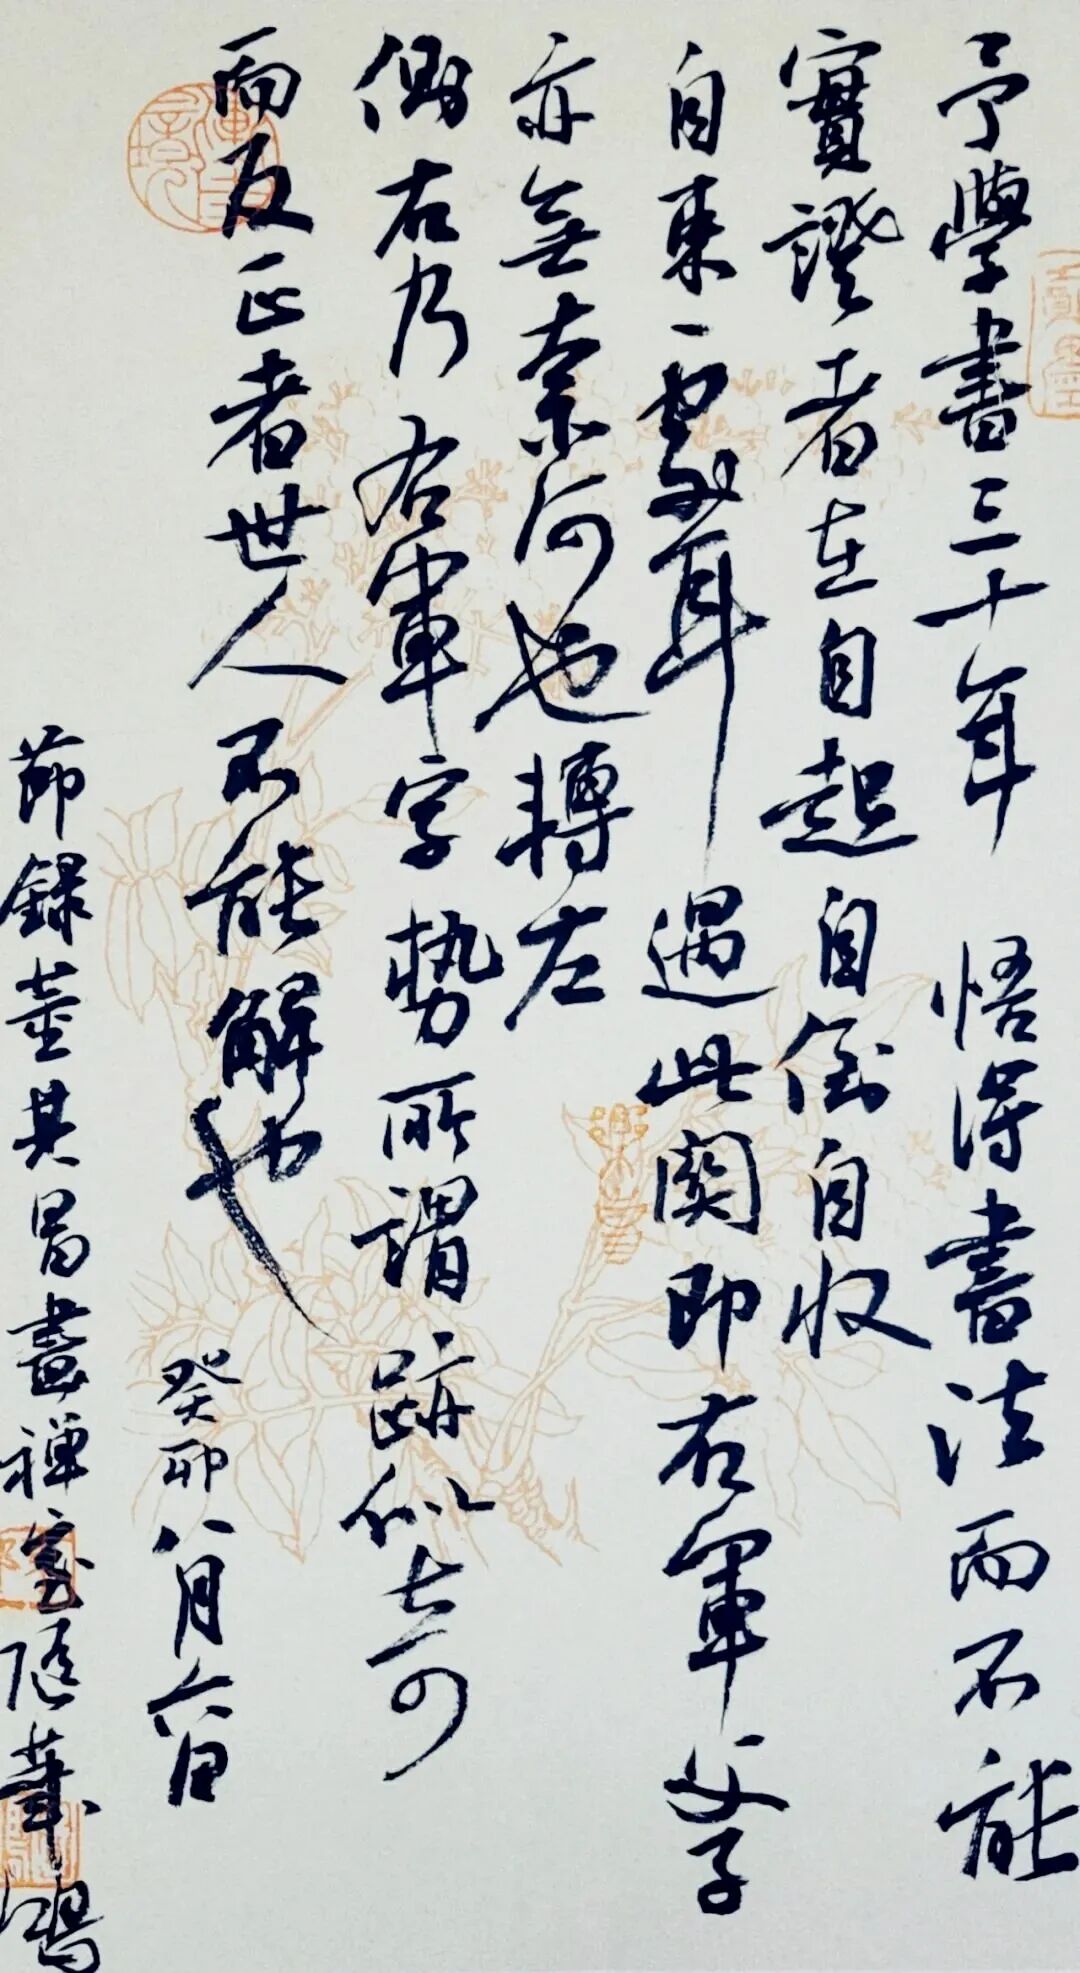 予學書三十年悟得書法而不能
實證者在自起自倒自收
自束處耳過此關即右軍父子
亦無奈何也轉左
側右乃右軍字勢所謂跡似奇
而反正者世人不能解也
癸卯八月六日
節錄董其昌畫禪室隨筆鴻